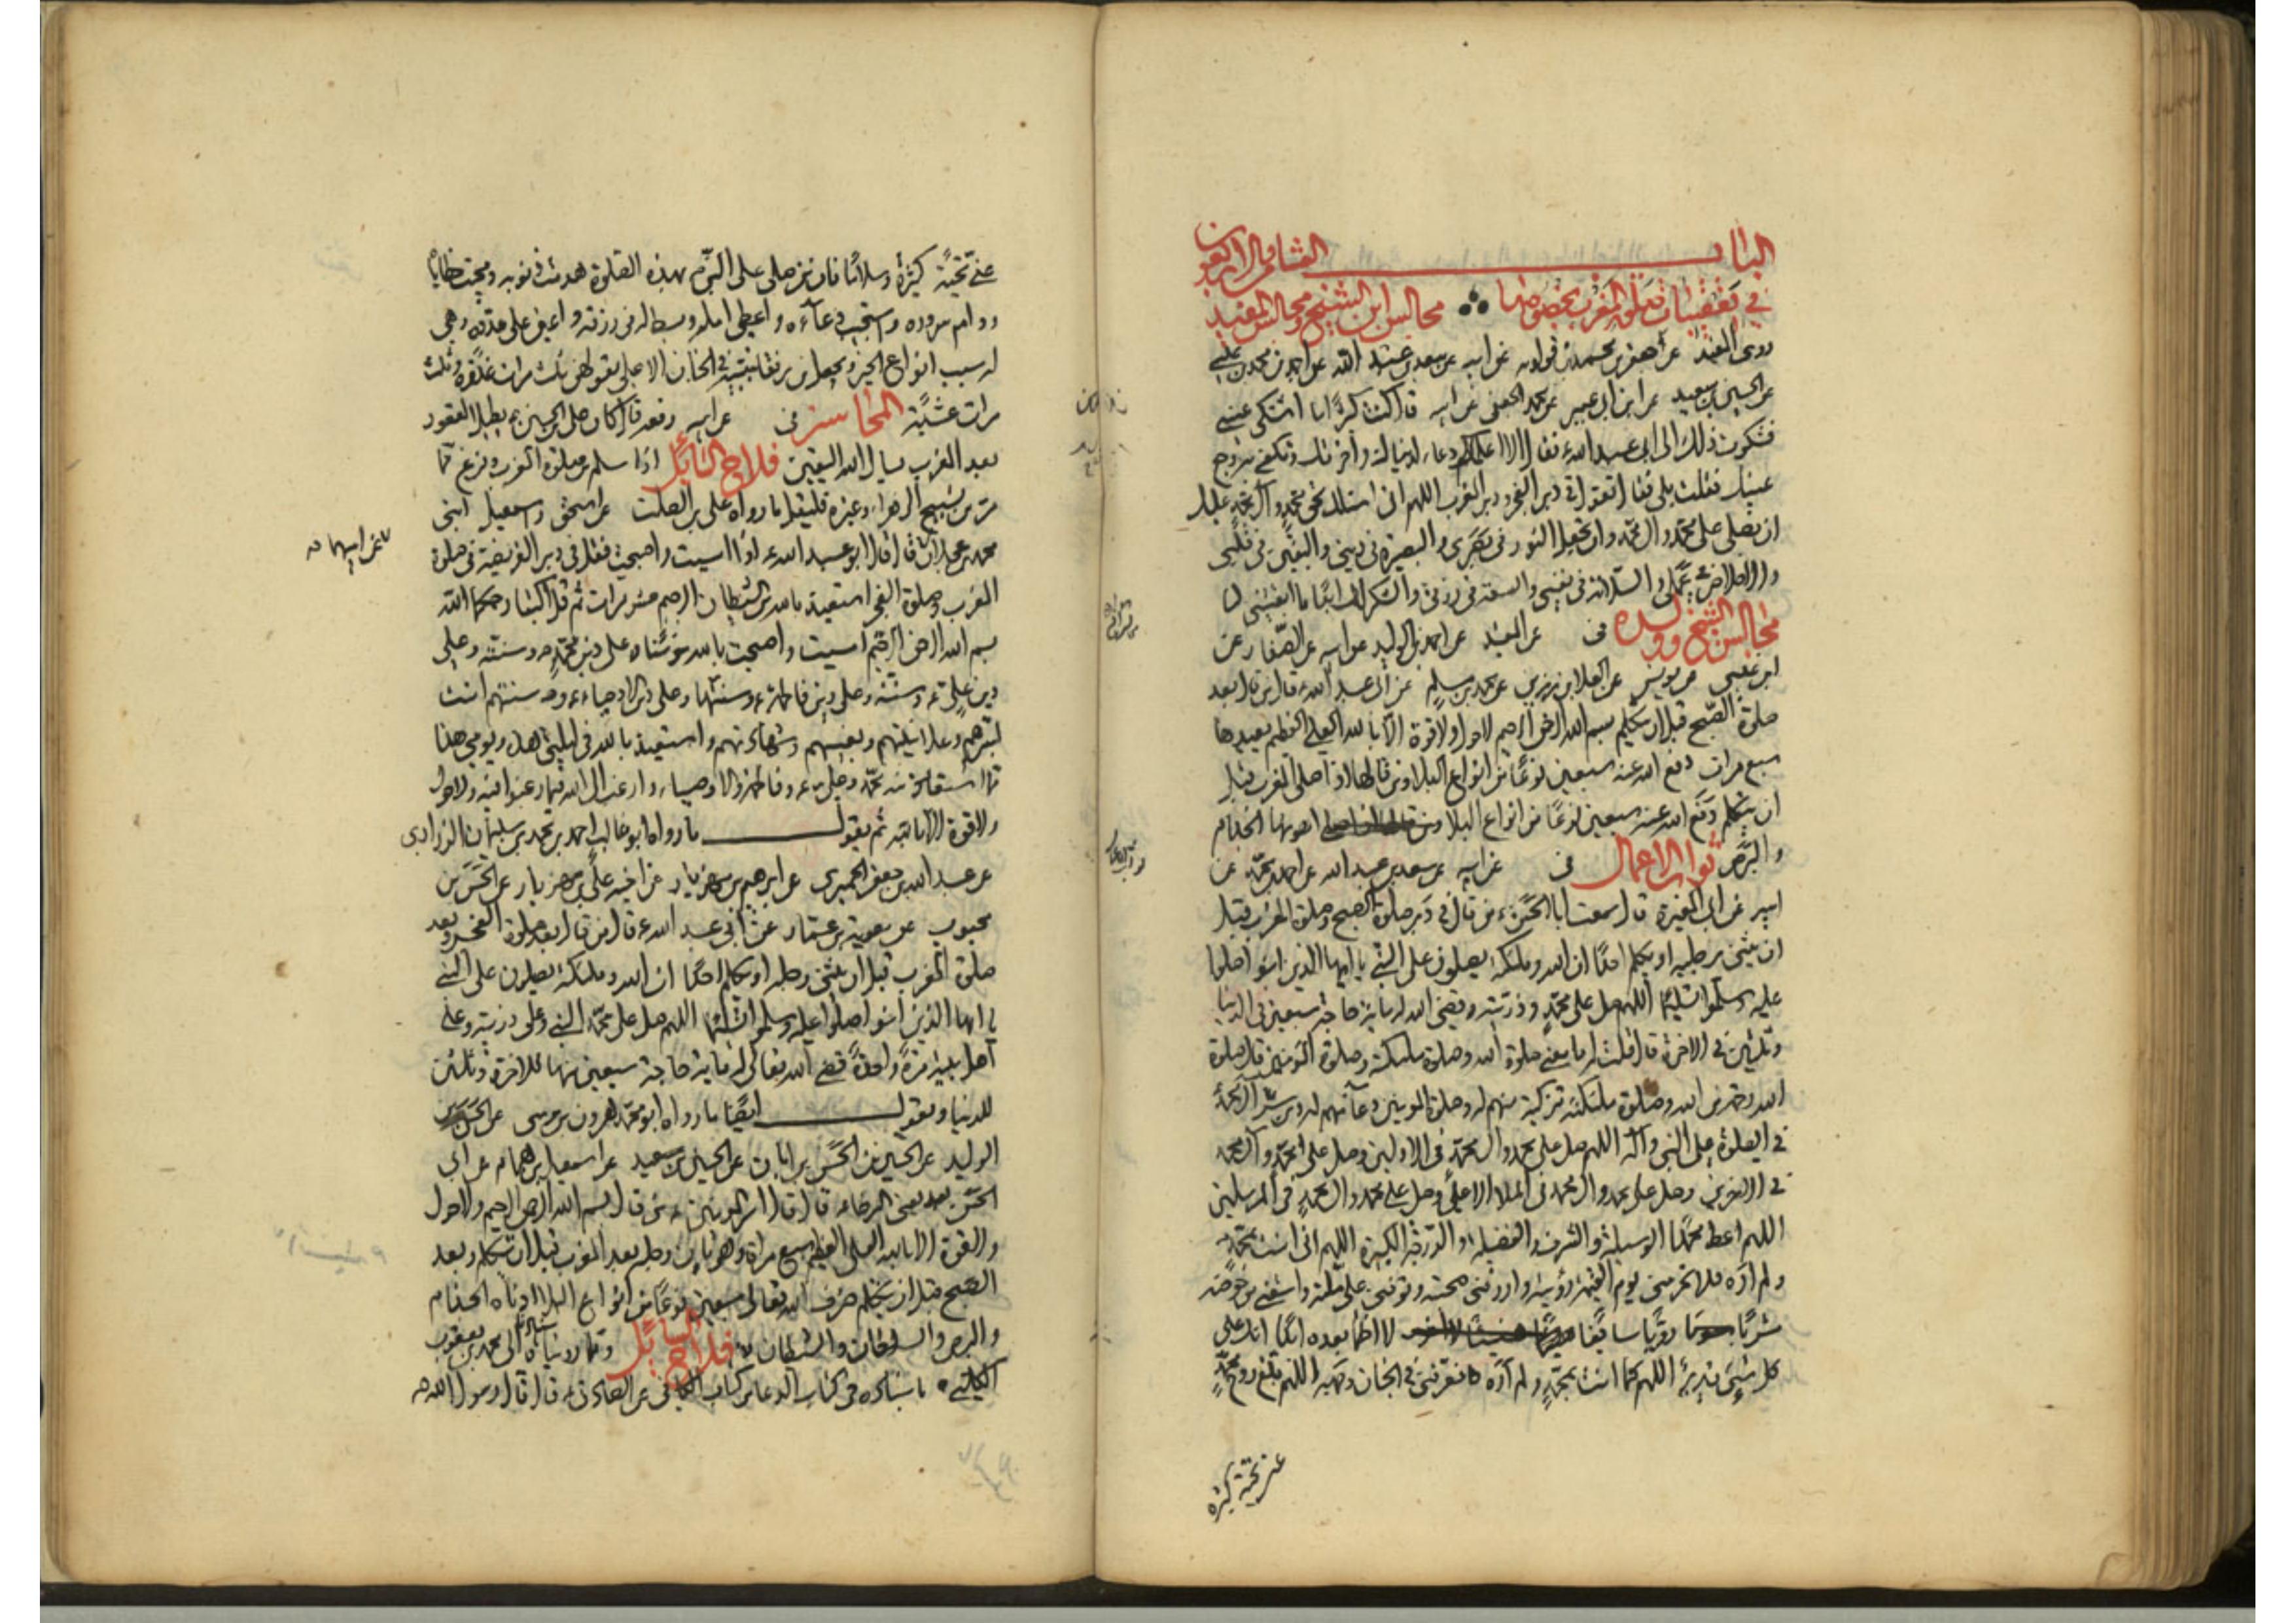 الباب الثامن والاربعون
في تعقيبات تعلق المغرب بخصوصها مجالس ابن الشيخ ومجالس المفيد
روى المفيد عن جعفر بن محمد بن قولويه عن ابيه عن سعد بن عبد الله عن احمد بن محمد بن علي
عن الحسين بن سعيد عن ابن ابي عمير عن محمد الجعفي عن ابيه قال كنت كثيرا ما اشتكي عيني
فشكوت ذلك الى ابي عبد الله ع فقال الا اعلمك دعاء لدنياك وآخرتك وتكفى به وجع
عينيك فقلت بلى فقال تقول في دبر الفجر ودبر المغرب اللهم اني اسئلك بحق محمد وآل محمد عليك
ان تصلي على محمد وال محمد وان تجعل النور في بصري والبصيرة في ديني واليقين في قلبي
والاخلاص في عملي والسلامة في نفسي والسعة في رزقي والشكر لك ابدا ما ابقيتني
مجالس الشيخ وولده في عن المفيد عن احمد بن الوليد عن ابيه عن الصفار عن
ابن عيسى عن يونس عن العلا بن رزين عن محمد بن مسلم عن ابي عبد الله ع قال من قال بعد
صلوة الصبح قبل ان يتكلم بسم الله الرحمن الرحيم لا حول ولا قوة الا بالله العلي العظيم يعيدها
سبع مرات دفع الله عنه سبعين نوعا من انواع البلا ومن قالها اذا صلى المغرب قبل
ان يتكلم دفع الله عنه سبعين نوعا من انواع البلا اهونها الجذام
والبرص ثواب الاعمال في عن ابيه عن سعد بن عبد الله عن احمد بن محمد عن
ابيه عن ابي المغيرة قال سمعت ابا الحسن ع من قال في دبر صلوة الصبح وصلوة المغرب قبل
ان يثني رجليه او يكلم احدا ان الله وملئكته يصلون على النبي يا ايها الذين امنوا صلوا
عليه وسلموا تسليما اللهم صل على محمد وذريته قضى الله له مائة حاجة سبعين في الدنيا
وثلثين في الاخرة قال قلت له ما معنى صلوة الله وصلوة ملئكته وصلوة المؤمنين قال صلوة
الله رحمة من الله وصلوة ملئكته تزكية منهم له وصلوة المؤمنين دعاء منهم له ومن سر آل محمد
في الصلوة على النبي وآله اللهم صل على محمد وال محمد في الاولين وصل على محمد وآل محمد
في الاخرين وصل على محمد وال محمد في الملا الاعلى وصل على محمد وال محمد في المرسلين
اللهم اعط محمدا الوسيلة والشرف والفضيلة والدرجة الكبيرة اللهم اني امنت بمحمد
ولم اره فلا تحرمني يوم القيمة رؤيته وارزقني صحبته وتوفني على ملته واسقني من حوضه
مشربا رويا سائغا لا اظمأ بعده ابدا انك على
كل شيء قدير اللهم كما امنت بمحمد ولم اره فعرفني في الجنان وجهه اللهم بلغ روح محمد
عني تحية كثيرة
عني تحية كثيرة وسلاما فان من صلى على النبي ص بهذه الصلوة هدمت ذنوبه ومحيت خطاياه
ودام سروره واستجيب دعاءه واعطي امله وبسط له في رزقه واعين على عدوه وهي
له سبب انواع الخير ويجعل من رفقاء نبيه في الجنان الاعلى يقولهن ثلث مرات غدوة وثلث
مرات عشية المحاسن في عن ابيه رفعه قال كان علي بن الحسين ع يطيل القعود
بعد المغرب يسال الله اليقين فلاح السائل اذا سلم من صلوة المغرب وفرغ مما
مر من تسبيح الزهراء وغيره فليقل ما رواه علي بن الصلت عن اسحق واسمعيل ابني
محمد بن عجلان قال قال ابو عبد الله ع اذا امسيت واصبحت فقل في دبر الفريضة في صلوة
عن ابيهما صح
المغرب وصلوة الفجر استعيذ بالله من الشيطان الرجيم عشر مرات ثم قل اكتبا رحمكما الله
بسم الله الرحمن الرحيم امسيت واصبحت بالله مؤمنا على دين محمد ص وسنته وعلى
دين علي ع وسنته وعلى دين فاطمة ع وسنتها وعلى دين الاوصياء ع وسنتهم امنت
بسرهم وعلانيتهم وبغيبهم وشهادتهم واستعيذ بالله في ليلتي هذه ويومي هذا
مما استعاذ منه محمد وعلي ع وفاطمة والاوصياء وارغب الى الله فيما رغبوا فيه ولا حول
ولا قوة الا بالله ثم يقول ما رواه ابو غالب احمد بن محمد بن سليمان الزراري
عن عبد الله بن جعفر الحميري عن ابرهيم بن مهزيار عن اخيه علي بن مهزيار عن الحسن بن
محبوب عن معوية بن عمار عن ابي عبد الله ع قال من قال بعد صلوة الفجر وبعد
صلوة المغرب قبل ان يثني رجله او يكلم احدا ان الله وملئكته يصلون على النبي
يا ايها الذين امنوا صلوا عليه وسلموا تسليما اللهم صل على محمد النبي وعلى ذريته وعلى
اهل بيته مرة واحدة قضى الله تعالى له مائة حاجة سبعين منها للاخرة وثلثين
للدنيا ويقول ايضا ما رواه ابو محمد هرون بن موسى عن الحسن بن
الوليد عن الحسين بن الحسن بن ابان عن الحسين بن سعيد عن اسمعيل بن همام عن ابي
الحسن يعني الرضا ع قال قال امير المؤمنين ع من قال بسم الله الرحمن الرحيم ولا حول
ولا قوة الا بالله العلي العظيم سبع مرات وهو ثاني رجله بعد المغرب قبل ان يتكلم وبعد
الصبح قبل ان يتكلم صرف الله تعالى سبعين نوعا من انواع البلا ادناه الجذام
والبرص والسلطان والشيطان فلاح السائل ومما رويناه الى محمد بن يعقوب
الكليني باسناده في كتاب الدعا من كتاب الكافي عن الصادق ع قال قال رسول الله ص